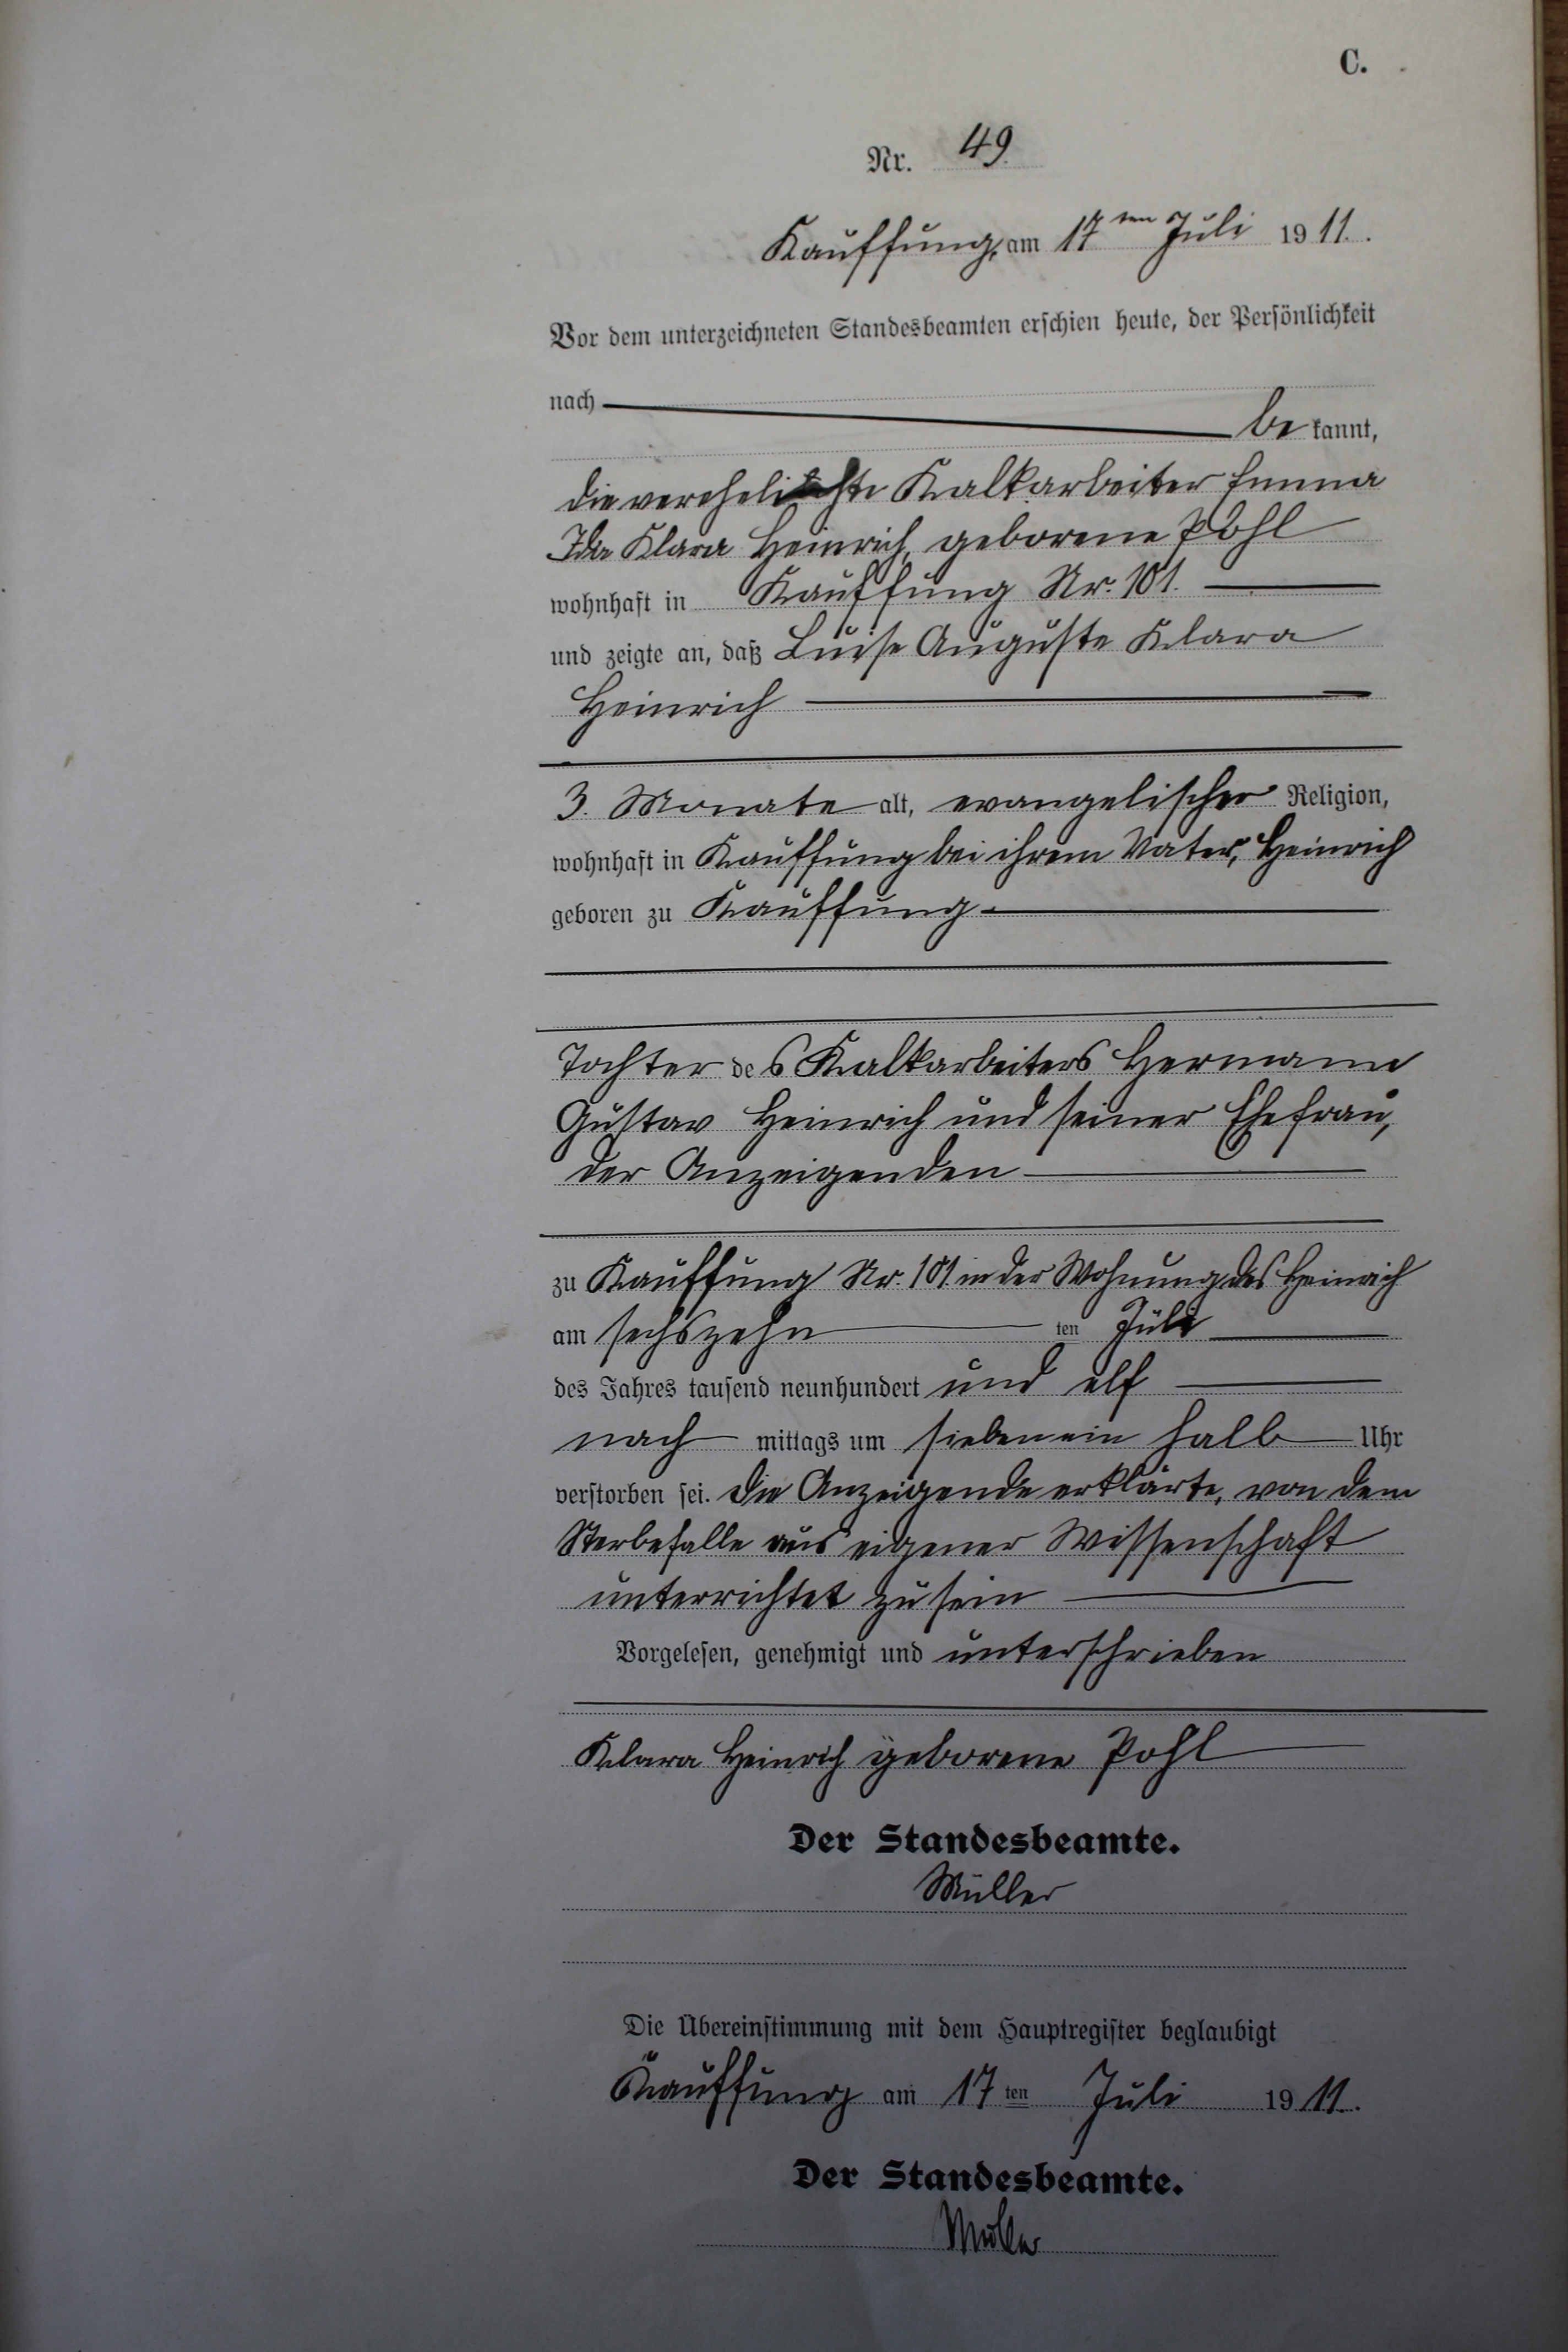 C.
Nr. 49
Kauffung, am 17ten Juli 1911.
Vor dem unterzeichneten Standesbeamten erschien heute, der Persönlichkeit
nach
be kannt,
die verehelichte Kalkarbeiter Emma
Ida Klara Heinrich, geborene Pohl
wohnhaft in Kauffung Nr. 101.
und zeigte an, daß Luise Auguste Klara
Heinrich
3. Monate alt, evangelischer Religion,
wohnhaft in Kauffung bei ihrem Vater, Heinrich
geboren zu Kauffung
Tochter des Kalkarbeiters Hermann
Gustav Heinrich und seiner Ehefrau,
der Anzeigenden
zu Kauffung Nr. 101 in der Wohnung des Heinrich
am sechszehn ten Juli
des Jahres tausend neunhundert und elf
nach mittags um sieben ein halb Uhr
verstorben sei. Die Anzeigende erklärte, von dem
Sterbefalle aus eigener Wissenschaft
unterrichtet zu sein
Vorgelesen, genehmigt und unterschrieben
Klara Heinrich geborene Pohl
Der Standesbeamte.
Müller
Die Übereinstimmung mit dem Hauptregister beglaubigt
Kauffung am 17ten Juli 1911.
Der Standesbeamte.
Müller